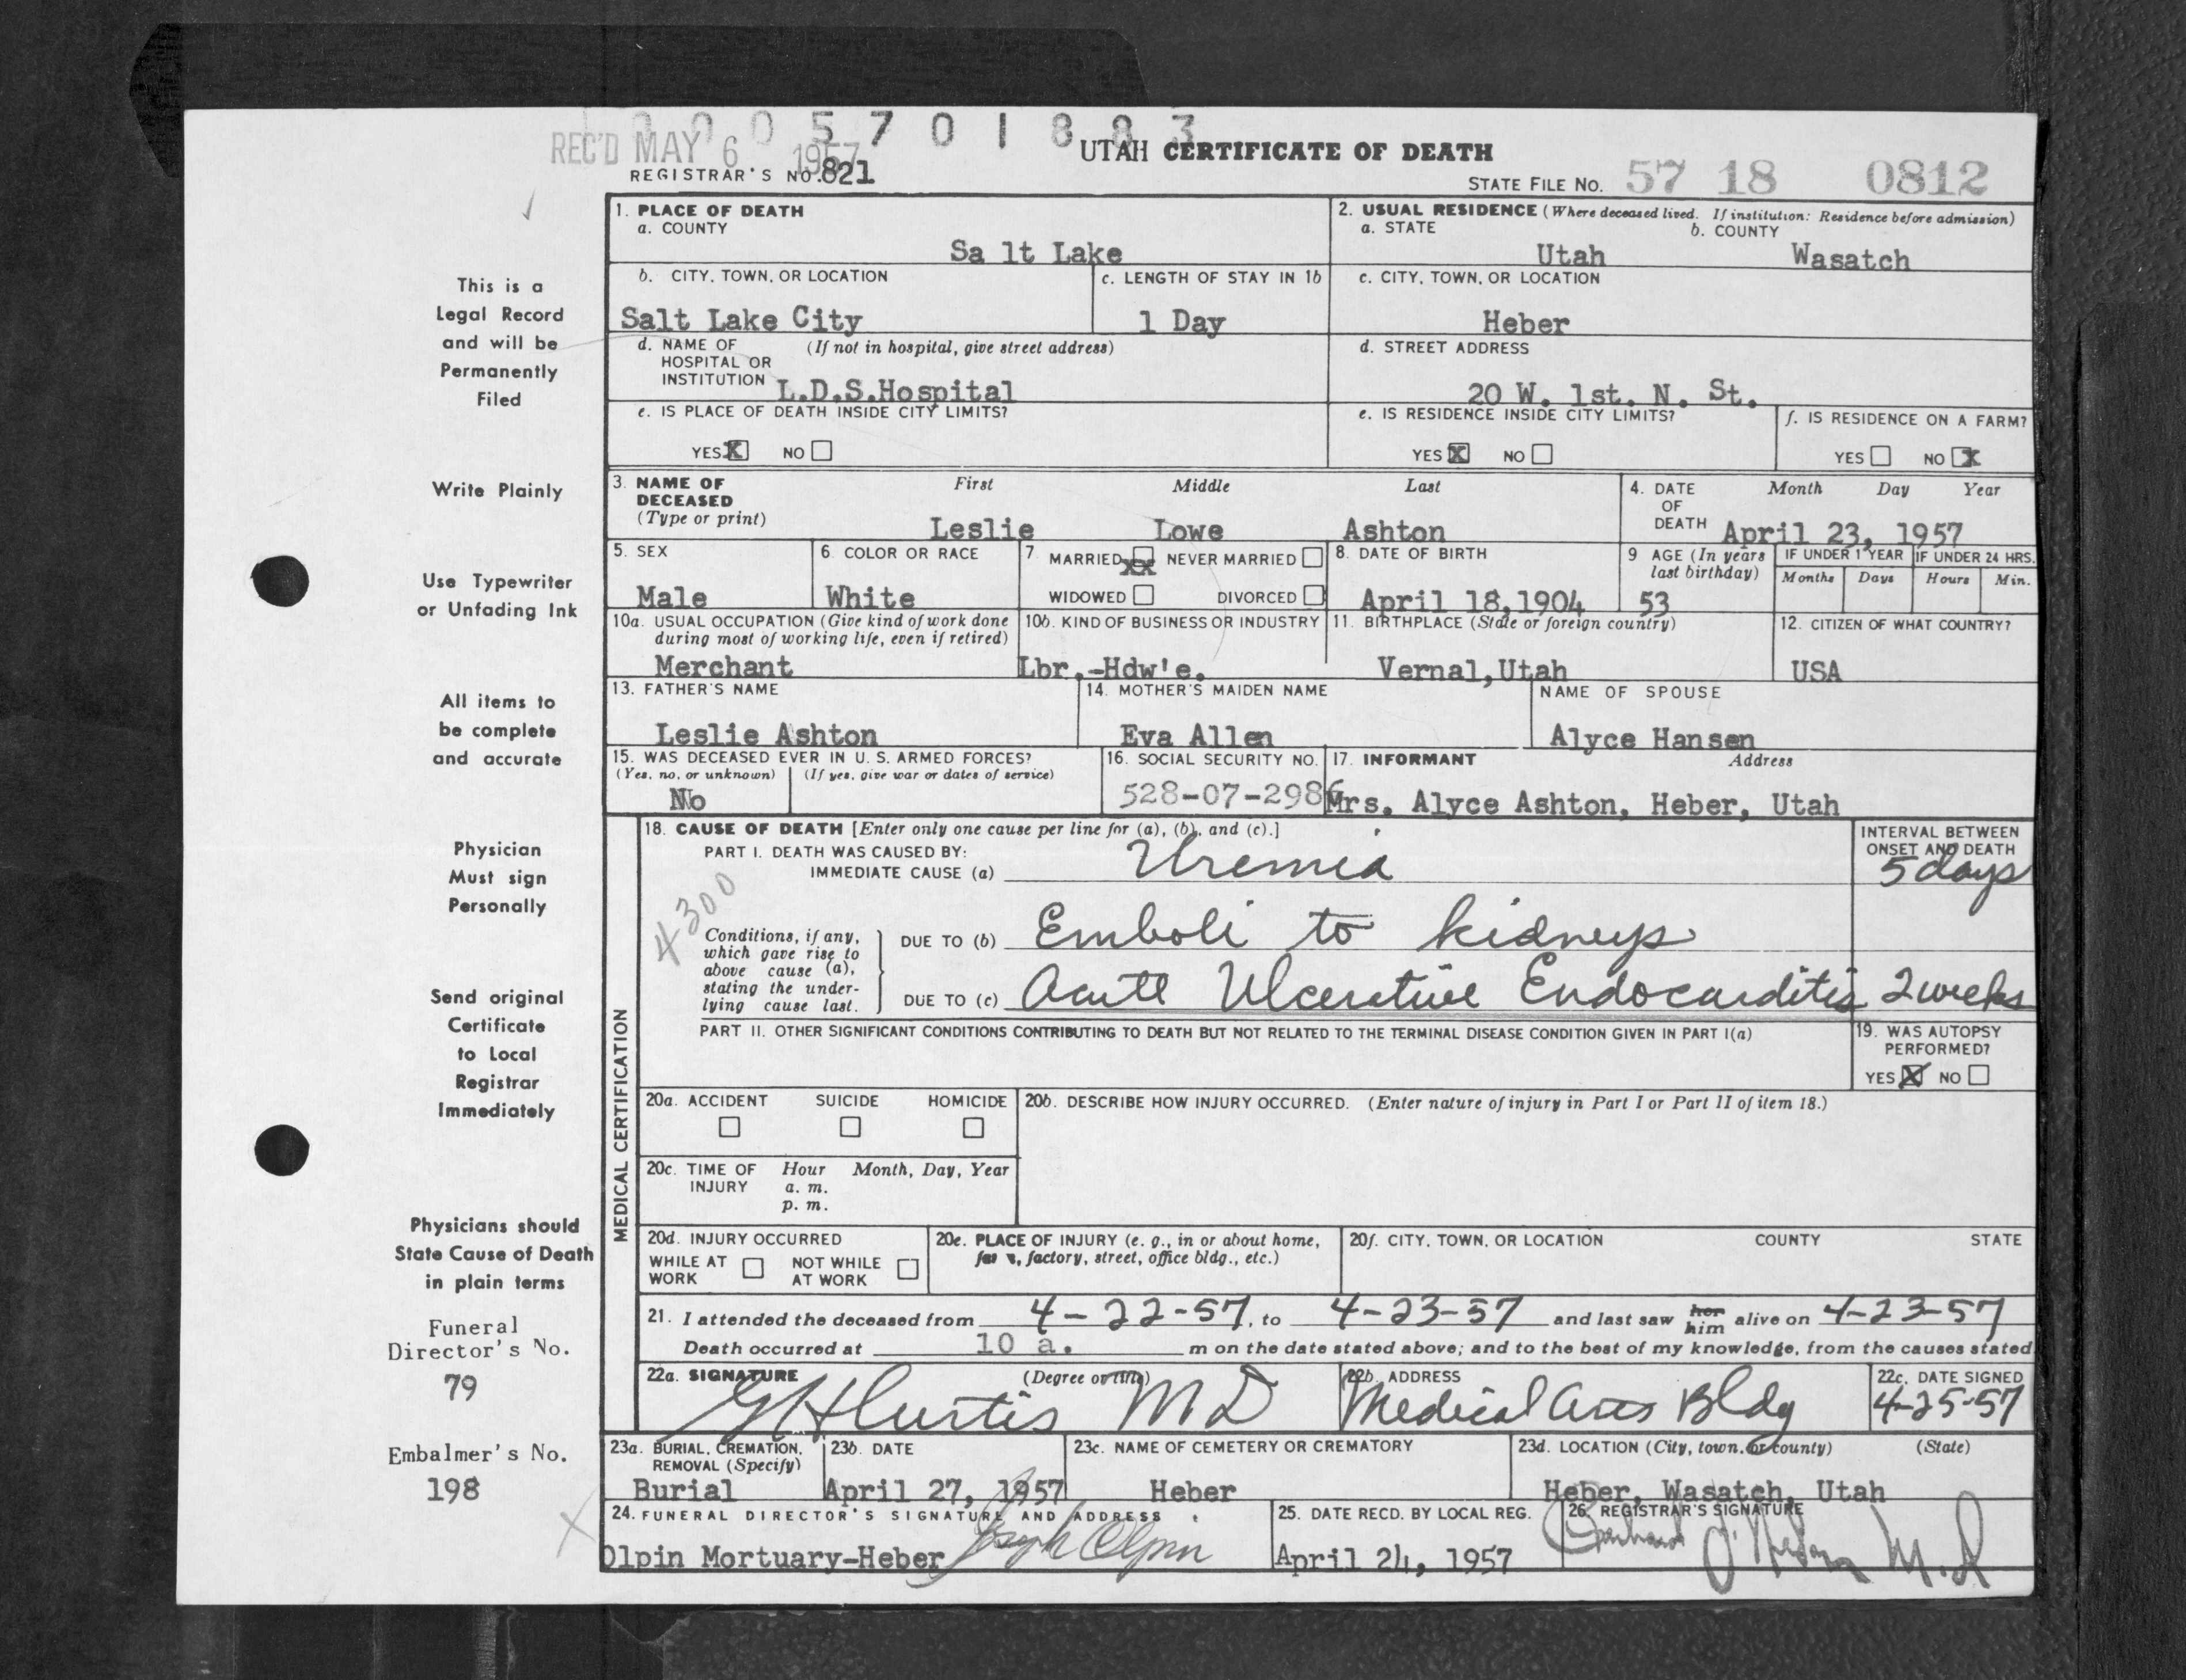 0 0 0 5 7 0 1 8 8 3
REC'D MAY 6 1957
UTAH CERTIFICATE OF DEATH
REGISTRAR'S NO. 821
STATE FILE NO. 57 18 0812
This is a
Legal Record
and will be
Permanently
Filed
Write Plainly
Use Typewriter
or Unfading Ink
All items to
be complete
and accurate
Physician
Must sign
Personally
Send original
Certificate
to Local
Registrar
Immediately
Physicians should
State Cause of Death
in plain terms
Funeral
Director's No.
79
Embalmer's No.
198
1. PLACE OF DEATH
a. COUNTY
Sa lt Lake
2. USUAL RESIDENCE (Where deceased lived. If institution: Residence before admission)
a. STATE b. COUNTY
Utah Wasatch
b. CITY, TOWN, OR LOCATION
Salt Lake City
c. LENGTH OF STAY IN 1b
1 Day
c. CITY, TOWN, OR LOCATION
Heber
d. NAME OF (If not in hospital, give street address)
HOSPITAL OR
INSTITUTION L.D.S.Hospital
d. STREET ADDRESS
20 W. 1st. N. St.
e. IS PLACE OF DEATH INSIDE CITY LIMITS?
YES X NO
e. IS RESIDENCE INSIDE CITY LIMITS?
YES X NO
f. IS RESIDENCE ON A FARM?
YES NO X
3. NAME OF First Middle Last
DECEASED
(Type or print)
Leslie Lowe Ashton
4. DATE Month Day Year
OF
DEATH April 23, 1957
5. SEX
Male
6. COLOR OR RACE
White
7. MARRIED XX NEVER MARRIED
WIDOWED DIVORCED
8. DATE OF BIRTH
April 18,1904
9 AGE (In years
last birthday)
53
IF UNDER 1 YEAR
Months Days
IF UNDER 24 HRS.
Hours Min.
10a. USUAL OCCUPATION (Give kind of work done
during most of working life, even if retired)
Merchant
10b. KIND OF BUSINESS OR INDUSTRY
Lbr.-Hdw'e.
11. BIRTHPLACE (State or foreign country)
Vernal,Utah
12. CITIZEN OF WHAT COUNTRY?
USA
13. FATHER'S NAME
Leslie Ashton
14. MOTHER'S MAIDEN NAME
Eva Allen
NAME OF SPOUSE
Alyce Hansen
15. WAS DECEASED EVER IN U. S. ARMED FORCES?
(Yes, no, or unknown) (If yes, give war or dates of service)
No
16. SOCIAL SECURITY NO.
528-07-2986
17. INFORMANT Address
Mrs. Alyce Ashton, Heber, Utah
MEDICAL CERTIFICATION
18. CAUSE OF DEATH [Enter only one cause per line for (a), (b), and (c).]
PART I. DEATH WAS CAUSED BY:
IMMEDIATE CAUSE (a) Uremia
INTERVAL BETWEEN
ONSET AND DEATH
5 days
4300
Conditions, if any,
which gave rise to
above cause (a),
stating the under-
lying cause last.
DUE TO (b) Emboli to kidneys
DUE TO (c) Acute Ulcerative Endocarditis 2 weeks
PART II. OTHER SIGNIFICANT CONDITIONS CONTRIBUTING TO DEATH BUT NOT RELATED TO THE TERMINAL DISEASE CONDITION GIVEN IN PART I(a)
19. WAS AUTOPSY
PERFORMED?
YES X NO
20a. ACCIDENT SUICIDE HOMICIDE
20b. DESCRIBE HOW INJURY OCCURRED. (Enter nature of injury in Part I or Part II of item 18.)
20c. TIME OF Hour Month, Day, Year
INJURY a. m.
p. m.
20d. INJURY OCCURRED
WHILE AT NOT WHILE
WORK AT WORK
20e. PLACE OF INJURY (e. g., in or about home,
factory, street, office bldg., etc.)
20f. CITY, TOWN, OR LOCATION COUNTY STATE
21. I attended the deceased from 4-22-57, to 4-23-57 and last saw her him alive on 4-23-57
Death occurred at 10 a. m on the date stated above; and to the best of my knowledge, from the causes stated
22a. SIGNATURE (Degree or title)
G H Curtis M D
22b. ADDRESS
Medical Arts Bldg
22c. DATE SIGNED
4-25-57
23a. BURIAL, CREMATION,
REMOVAL (Specify)
Burial
23b. DATE
April 27, 1957
23c. NAME OF CEMETERY OR CREMATORY
Heber
23d. LOCATION (City, town, or county) (State)
Heber, Wasatch, Utah
24. FUNERAL DIRECTOR'S SIGNATURE AND ADDRESS
Olpin Mortuary-Heber Joseph Olpin
25. DATE RECD. BY LOCAL REG.
April 24, 1957
26. REGISTRAR'S SIGNATURE
M.D